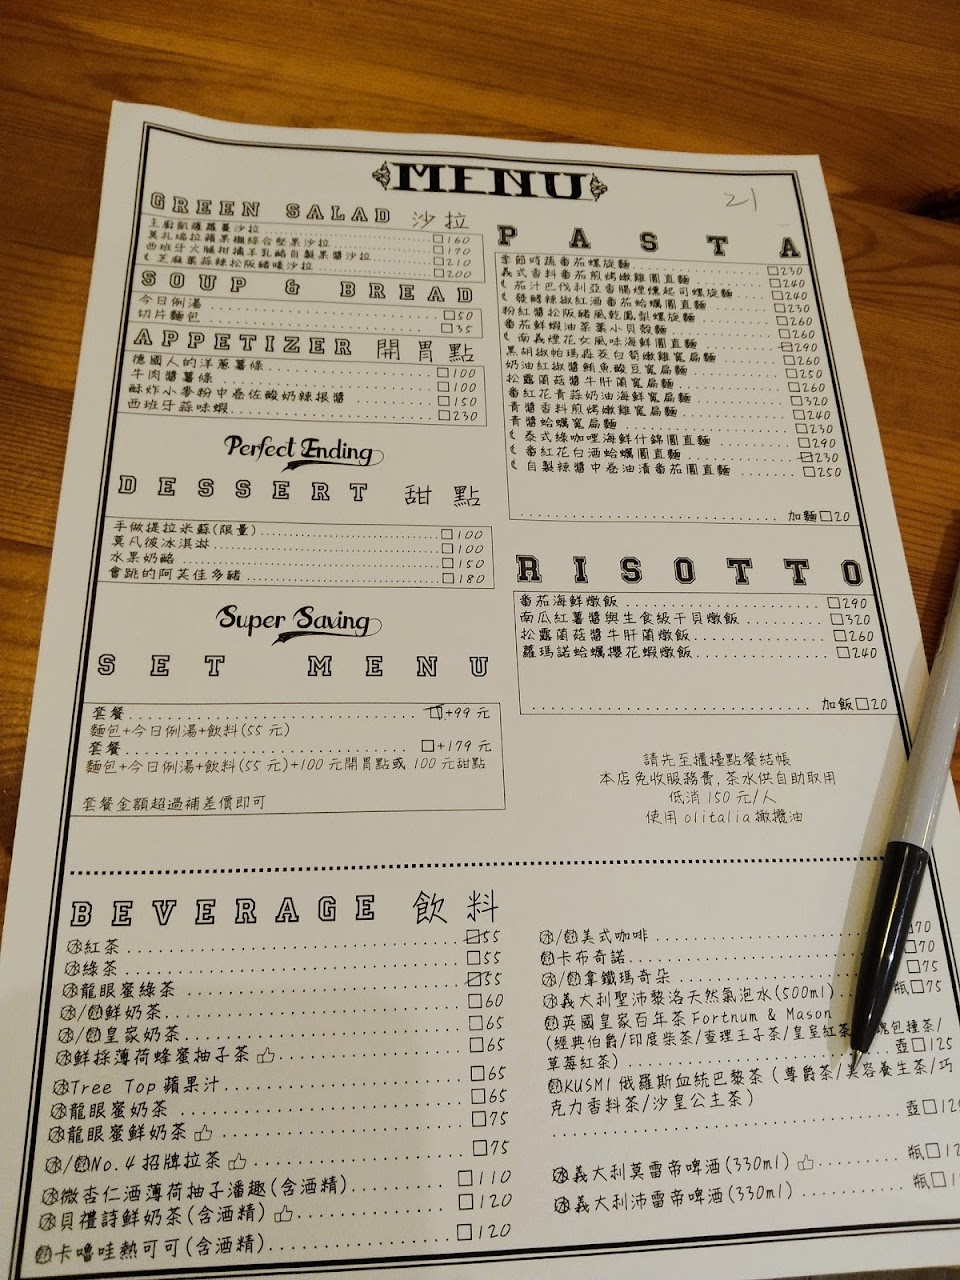 MENU
21
GREEN SALAD 沙拉
主廚凱薩蘿蔓沙拉 □160
莫札瑞拉蘋果楓綜合堅果沙拉 □170
西班牙火腿柑橘羊乳酪自製果醬沙拉 □210
芝麻葉蒜辣松阪豬暖沙拉 □200
SOUP & BREAD
今日例湯 □50
切片麵包 □35
APPETIZER 開胃點
德國人的洋蔥薯條 □100
牛肉醬薯條 □100
酥炸小麥粉中卷佐酸奶辣根醬 □150
西班牙蒜味蝦 □230
Perfect Ending
DESSERT 甜點
手做提拉米蘇(限量) □100
莫凡彼冰淇淋 □100
水果奶酪 □150
會跳的阿芙佳多豬 □180
Super Saving
SET MENU
套餐 □+99 元
麵包+今日例湯+飲料(55 元)
套餐 □+179 元
麵包+今日例湯+飲料(55 元)+100 元開胃點或 100 元甜點
套餐金額超過補差價即可
PASTA
季節時蔬番茄螺旋麵 □230
義式香料番茄煎烤嫩雞圓直麵 □240
茄汁巴伐利亞香腸煙燻起司螺旋麵 □240
發酵辣椒紅酒番茄蛤蠣圓直麵 □230
粉紅醬松阪豬風乾鳳梨螺旋麵 □260
番茄鮮蝦油菜葉小貝殼麵 □260
南義煙花女風味海鮮圓直麵 □290
黑胡椒帕瑪森茭白筍嫩雞寬扁麵 □260
奶油紅椒醬鮪魚酸豆寬扁麵 □250
松露菌菇醬牛肝菌寬扁麵 □260
番紅花青蒜奶油海鮮寬扁麵 □320
青醬香料煎烤嫩雞寬扁麵 □240
青醬蛤蠣寬扁麵 □230
泰式綠咖哩海鮮什錦圓直麵 □290
番紅花白酒蛤蠣圓直麵 □230
自製辣醬中卷油漬番茄圓直麵 □250
加麵□20
RISOTTO
番茄海鮮燉飯 □290
南瓜紅薯醬與生食級干貝燉飯 □320
松露菌菇醬牛肝菌燉飯 □260
蘿瑪諾蛤蠣櫻花蝦燉飯 □240
加飯□20
請先至櫃檯點餐結帳
本店免收服務費,茶水供自助取用
低消 150 元/人
使用 olitalia 橄欖油
BEVERAGE 飲料
冰紅茶 □55
冰綠茶 □55
冰龍眼蜜綠茶 □55
冰/熱鮮奶茶 □60
冰/熱皇家奶茶 □65
冰鮮採薄荷蜂蜜柚子茶 □65
冰Tree Top 蘋果汁 □65
冰龍眼蜜奶茶 □65
冰龍眼蜜鮮奶茶 □75
冰/熱No.4 招牌拉茶 □75
冰微杏仁酒薄荷柚子潘趣(含酒精) □110
冰貝禮詩鮮奶茶(含酒精) □120
熱卡嚕哇熱可可(含酒精) □120
冰/熱美式咖啡 70
熱卡布奇諾 □70
冰/熱拿鐵瑪奇朵 □75
冰義大利聖沛黎洛天然氣泡水(500ml) 瓶□75
熱英國皇家百年茶 Fortnum & Mason
(經典伯爵/印度柴茶/查理王子茶/皇室紅茶 瑰包種茶/
草莓紅茶) 壺□125
熱KUSMI 俄羅斯血統巴黎茶 (尊爵茶/美容養生茶/巧
克力香料茶/沙皇公主茶)
壺□12
冰義大利莫雷帝啤酒(330ml) 瓶□12
冰義大利沛雷帝啤酒(330ml) 瓶□1